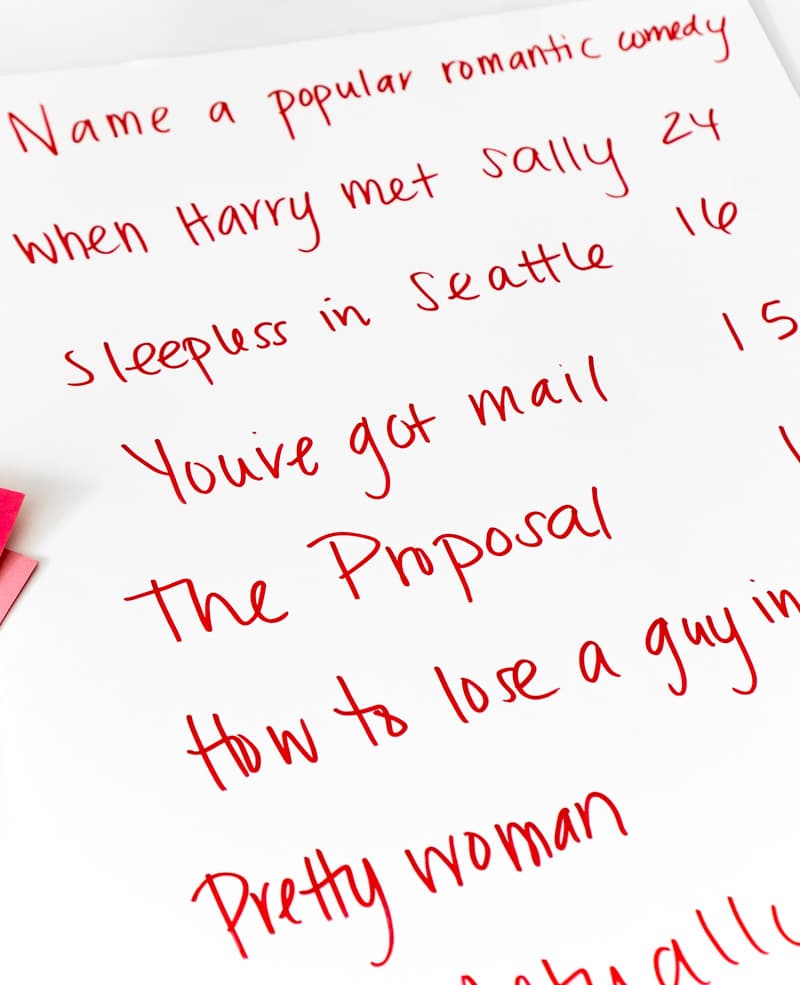 Name a popular romantic comedy
When Harry met Sally 24
Sleepless in Seattle 16
You've got mail 15
The Proposal
How to lose a guy in
Pretty woman